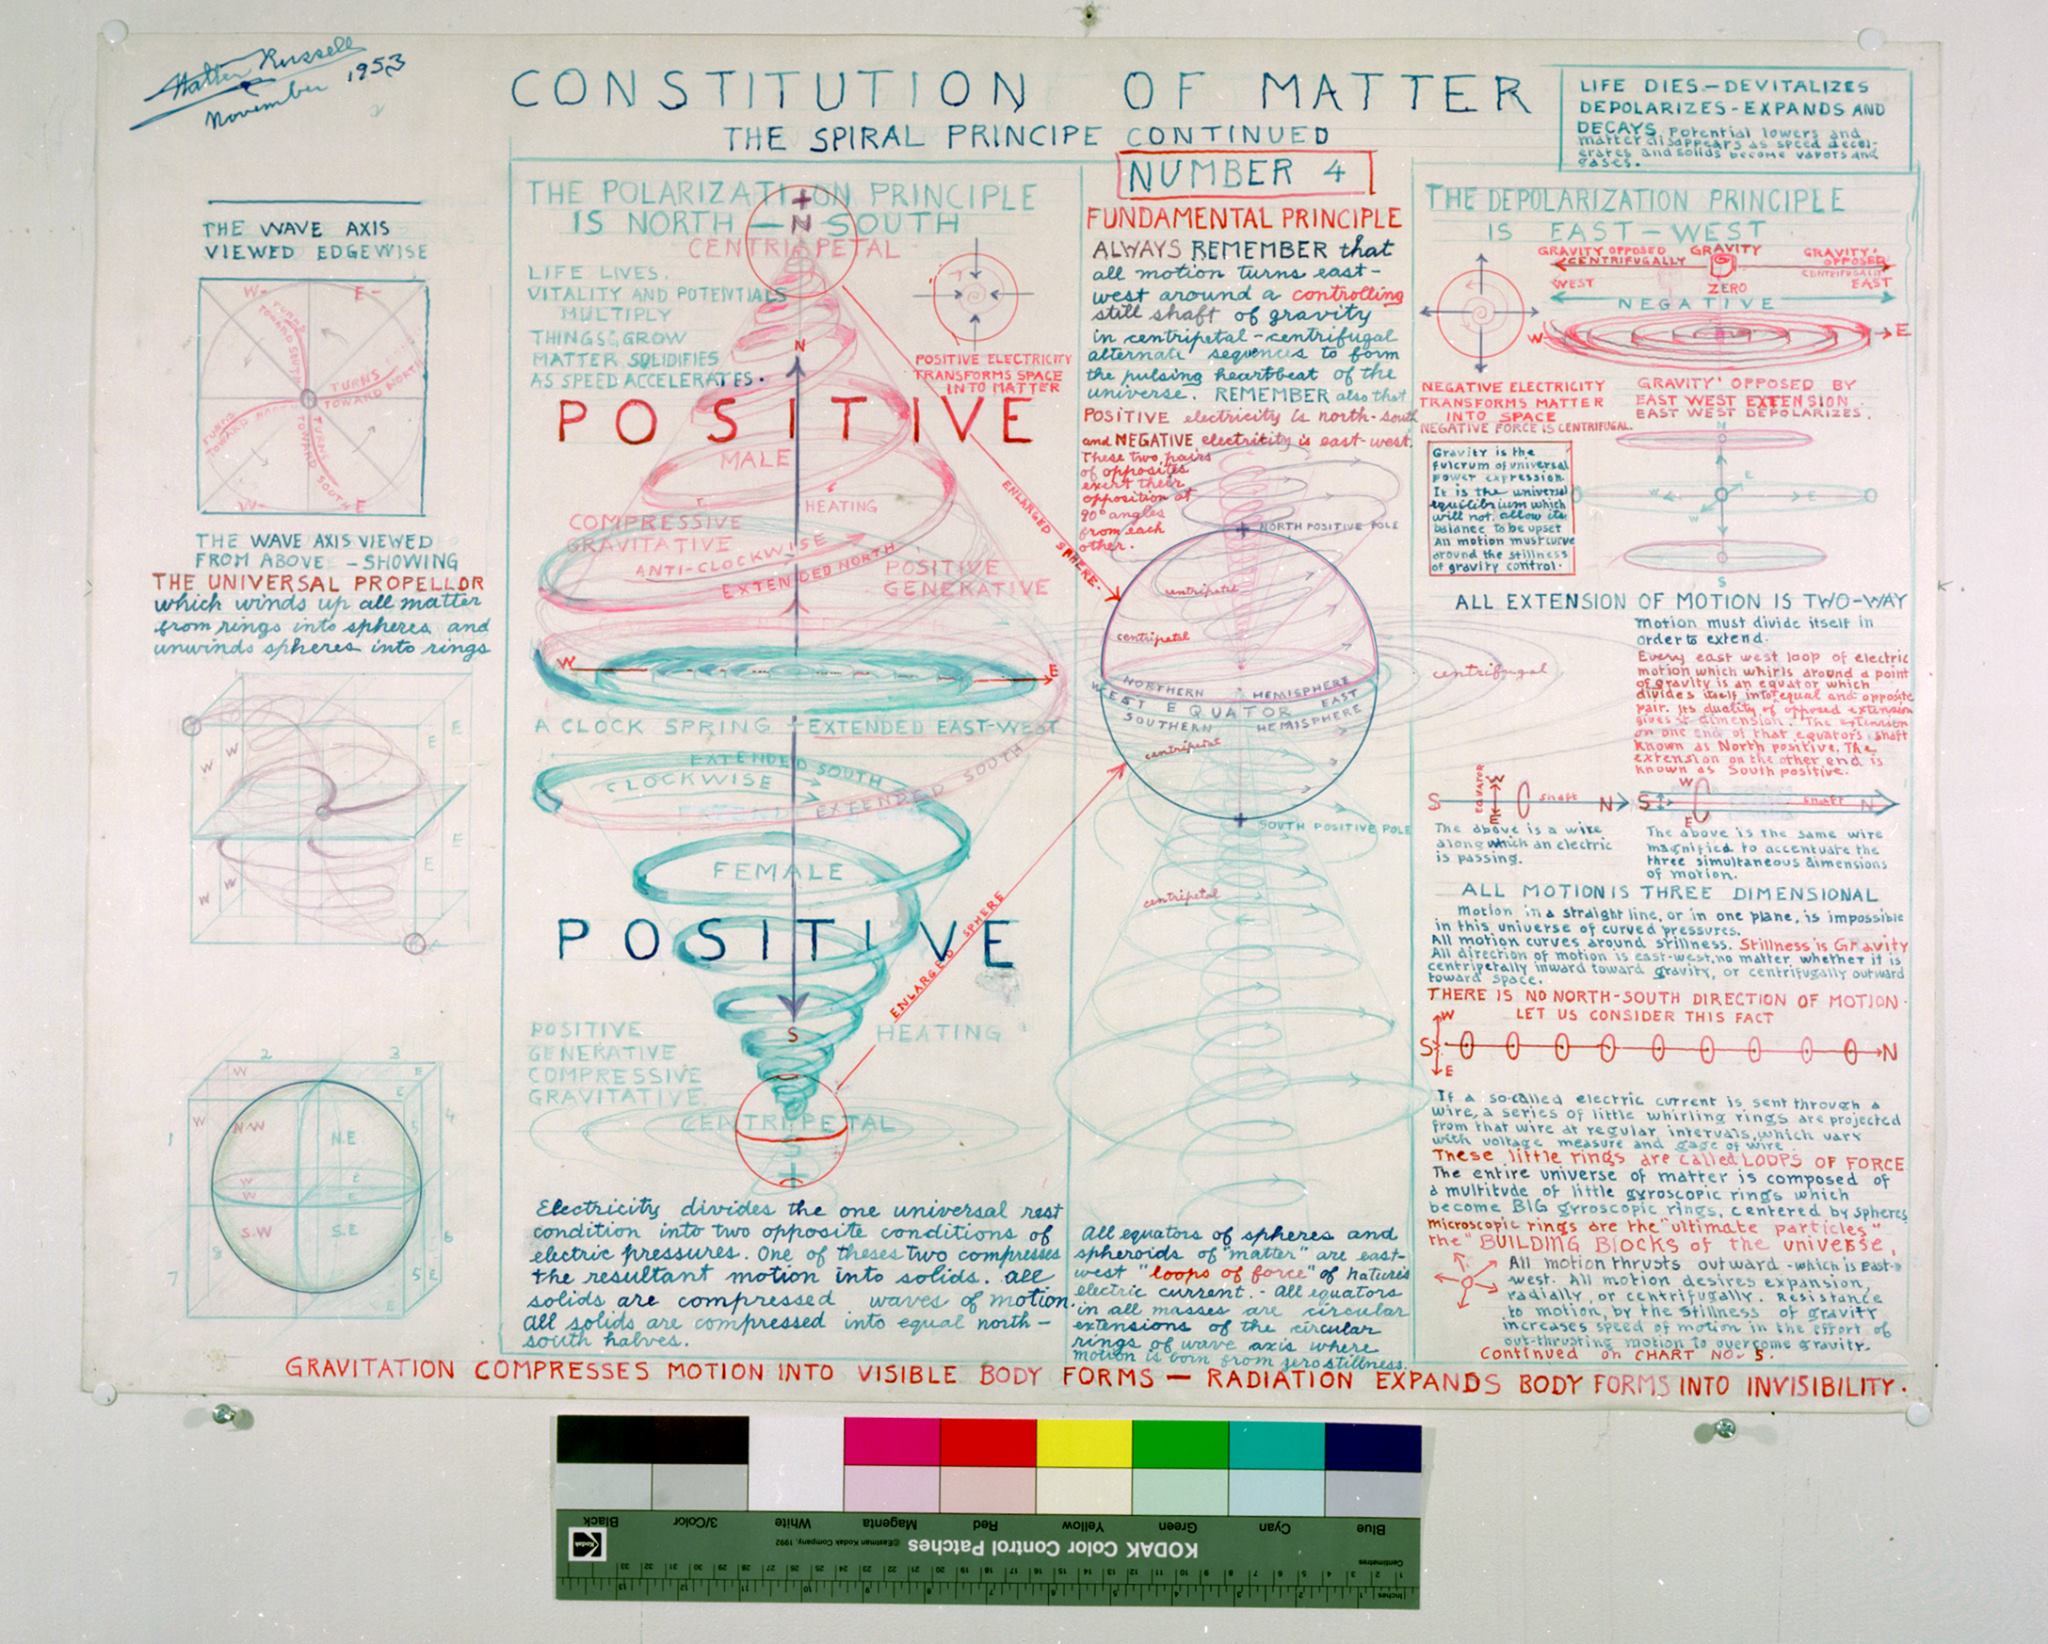 Walter Russell
November 1953
CONSTITUTION OF MATTER
THE SPIRAL PRINCIPE CONTINUED
NUMBER 4
LIFE DIES.—DEVITALIZES
DEPOLARIZES-EXPANDS AND
DECAYS. Potential lowers and
matter disappears as speed decel-
erates and solids become vapors and
gases.
THE WAVE AXIS
VIEWED EDGEWISE
W-
E-
TURNS
TOWARD SOUTH
TURNS
TOWARD NORTH
TURNS
TOWARD NORTH
TURNS
TOWARD
SOUTH
W-
E
THE WAVE AXIS VIEWED
FROM ABOVE - SHOWING
THE UNIVERSAL PROPELLOR
which winds up all matter
from rings into spheres and
unwinds spheres into rings
W
W
W
E
E
E
E
W
W
W
2
3
W
E
E
W
N.W
N.E.
4
1
5
W
E
W
E
S.W
S.E.
8
6
7
5
E
E
THE POLARIZATION PRINCIPLE
IS NORTH — SOUTH
+
N
CENTRIPETAL
LIFE LIVES.
VITALITY AND POTENTIALS
MULTIPLY
THINGS GROW
MATTER SOLIDIFIES
AS SPEED ACCELERATES.
POSITIVE ELECTRICITY
TRANSFORMS SPACE
INTO MATTER
N
POSITIVE
MALE
HEATING
COMPRESSIVE
GRAVITATIVE
ANTI-CLOCKWISE
EXTENDED NORTH
POSITIVE
GENERATIVE
ENLARGED SPHERE.
W
E
A CLOCK SPRING - EXTENDED EAST-WEST
EXTENDED SOUTH
CLOCKWISE
EXTENDED SOUTH
FEMALE
POSITIVE
ENLARGED SPHERE
S
HEATING
POSITIVE
GENERATIVE
COMPRESSIVE
GRAVITATIVE
CENTRIPETAL
S
+
Electricity divides the one universal rest
condition into two opposite conditions of
electric pressures. One of theses two compresses
the resultant motion into solids. All
solids are compressed waves of motion.
All solids are compressed into equal north-
south halves.
FUNDAMENTAL PRINCIPLE
ALWAYS REMEMBER that
all motion turns east-
west around a controlling
still shaft of gravity
in centripetal-centrifugal
alternate sequences to form
the pulsing heartbeat of the
universe. REMEMBER also that
POSITIVE electricity is north-south
and NEGATIVE electricity is east-west.
These two pairs
of opposites
exert their
opposition at
90° angles
from each
other.
NORTH POSITIVE POLE
centripetal
centripetal
centrifugal
NORTHERN HEMISPHERE
WEST EQUATOR EAST
SOUTHERN HEMISPHERE
centripetal
SOUTH POSITIVE POLE
centripetal
All equators of spheres and
spheroids of "matter" are east-
west "loops of force" of Nature's
electric current. - All equators
in all masses are circular
extensions of the circular
rings of wave axis where
motion is born from zero stillness.
THE DEPOLARIZATION PRINCIPLE
IS EAST-WEST
GRAVITY OPPOSED
CENTRIFUGALLY
GRAVITY
GRAVITY
OPPOSED
CENTRIFUGALLY
WEST
ZERO
EAST
NEGATIVE
W
E
NEGATIVE ELECTRICITY
TRANSFORMS MATTER
INTO SPACE
NEGATIVE FORCE IS CENTRIFUGAL.
GRAVITY OPPOSED BY
EAST WEST EXTENSION.
EAST WEST DEPOLARIZES.
Gravity is the
fulcrum of universal
power expression.
It is the universal
equilibrium which
will not allow its
balance to be upset
All motion must curve
around the stillness
of gravity control.
N
W
E
E
W
S
ALL EXTENSION OF MOTION IS TWO-WAY
Motion must divide itself in
order to extend.
Every east west loop of electric
motion which whirls around a point
of gravity is an equator which
divides itself into equal and opposite
pair. Its duality of opposed extension
gives it dimension. The extension
on one end of that equator's shaft
known as North positive. The
extension on the other end is
known as South positive.
S
EQUATOR
W
E
shaft
N
S
W
E
shaft
N
The above is a wire
along which an electric
is passing.
The above is the same wire
magnified to accentuate the
three simultaneous dimensions
of motion.
ALL MOTION IS THREE DIMENSIONAL
Motion in a straight line, or in one plane, is impossible
in this universe of curved pressures.
All motion curves around stillness. Stillness is Gravity
All direction of motion is east-west, no matter whether it is
centripetally inward toward gravity, or centrifugally outward
toward space.
THERE IS NO NORTH-SOUTH DIRECTION OF MOTION.
LET US CONSIDER THIS FACT
W
S
E
N
If a so-called electric current is sent through a
wire, a series of little whirling rings are projected
from that wire at regular intervals, which vary
with voltage measure and gage of wire.
These little rings are called LOOPS OF FORCE
The entire universe of matter is composed of
a multitude of little gyroscopic rings which
become BIG gyroscopic rings, centered by spheres
microscopic rings are the "ultimate particles"
the "BUILDING BLOCKS of the universe.
All motion thrusts outward - which is East-
west. All motion desires expansion,
radially, or centrifugally. Resistance
to motion, by the stillness of gravity
increases speed of motion in the effort of
out-thrusting motion to overcome gravity.
Continued on CHART NO. 5.
GRAVITATION COMPRESSES MOTION INTO VISIBLE BODY FORMS — RADIATION EXPANDS BODY FORMS INTO INVISIBILITY.
Black
3/Color
White
Magenta
Red
Yellow
Green
Cyan
Blue
Kodak
©Eastman Kodak Company, 1992
KODAK Color Control Patches
Centimetres
1 2 3 4 5 6 7 8 9 10 11 12 13 14 15 16 17 18 19 20 21 22 23 24 25 26 27 28 29 30 31 32 33
Inches
1 2 3 4 5 6 7 8 9 10 11 12 13